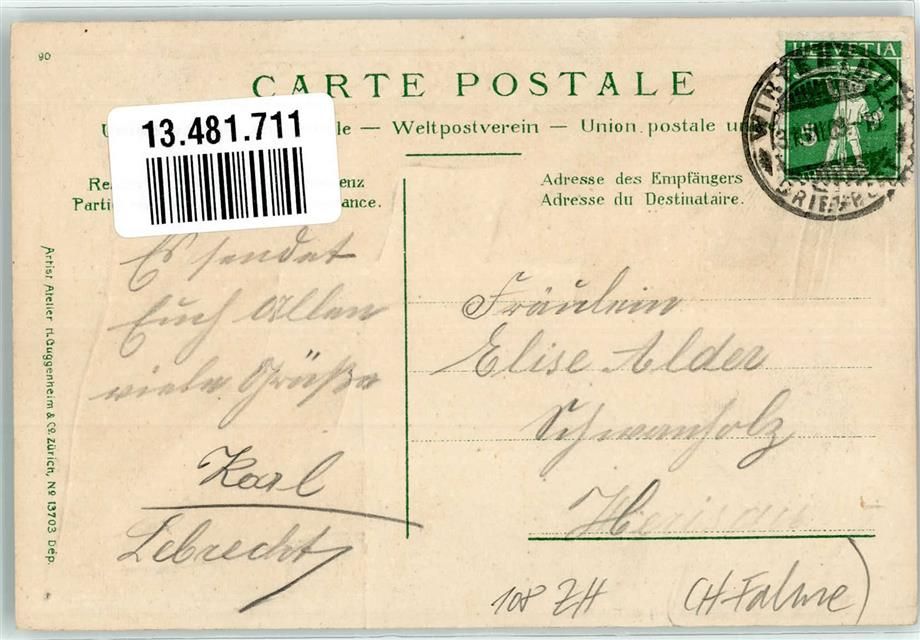 90
CARTE POSTALE
13.481.711
le — Weltpostverein — Union postale un
Adresse des Empfängers
Adresse du Destinataire.
Re
enz
Parti
ance.
HELVETIA
5
WINTERTHUR
BRIEF
Es sendet
Euch Allen
viele Grüße
Karl
Lebrecht
Fräulein
Elise Alder
Schwanholz
Herisau
108 ZH (CH-Fahne)
Artist. Atelier H. Guggenheim & Co. Zürich, No 13703 Dép.